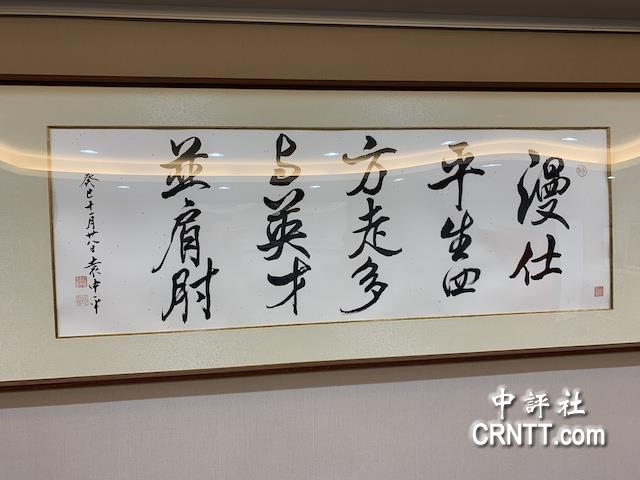 漫仕
平生四
方走多
与英才
並肩肘
癸巳十一月廿八日袁中平
中評社
CRNTT.com